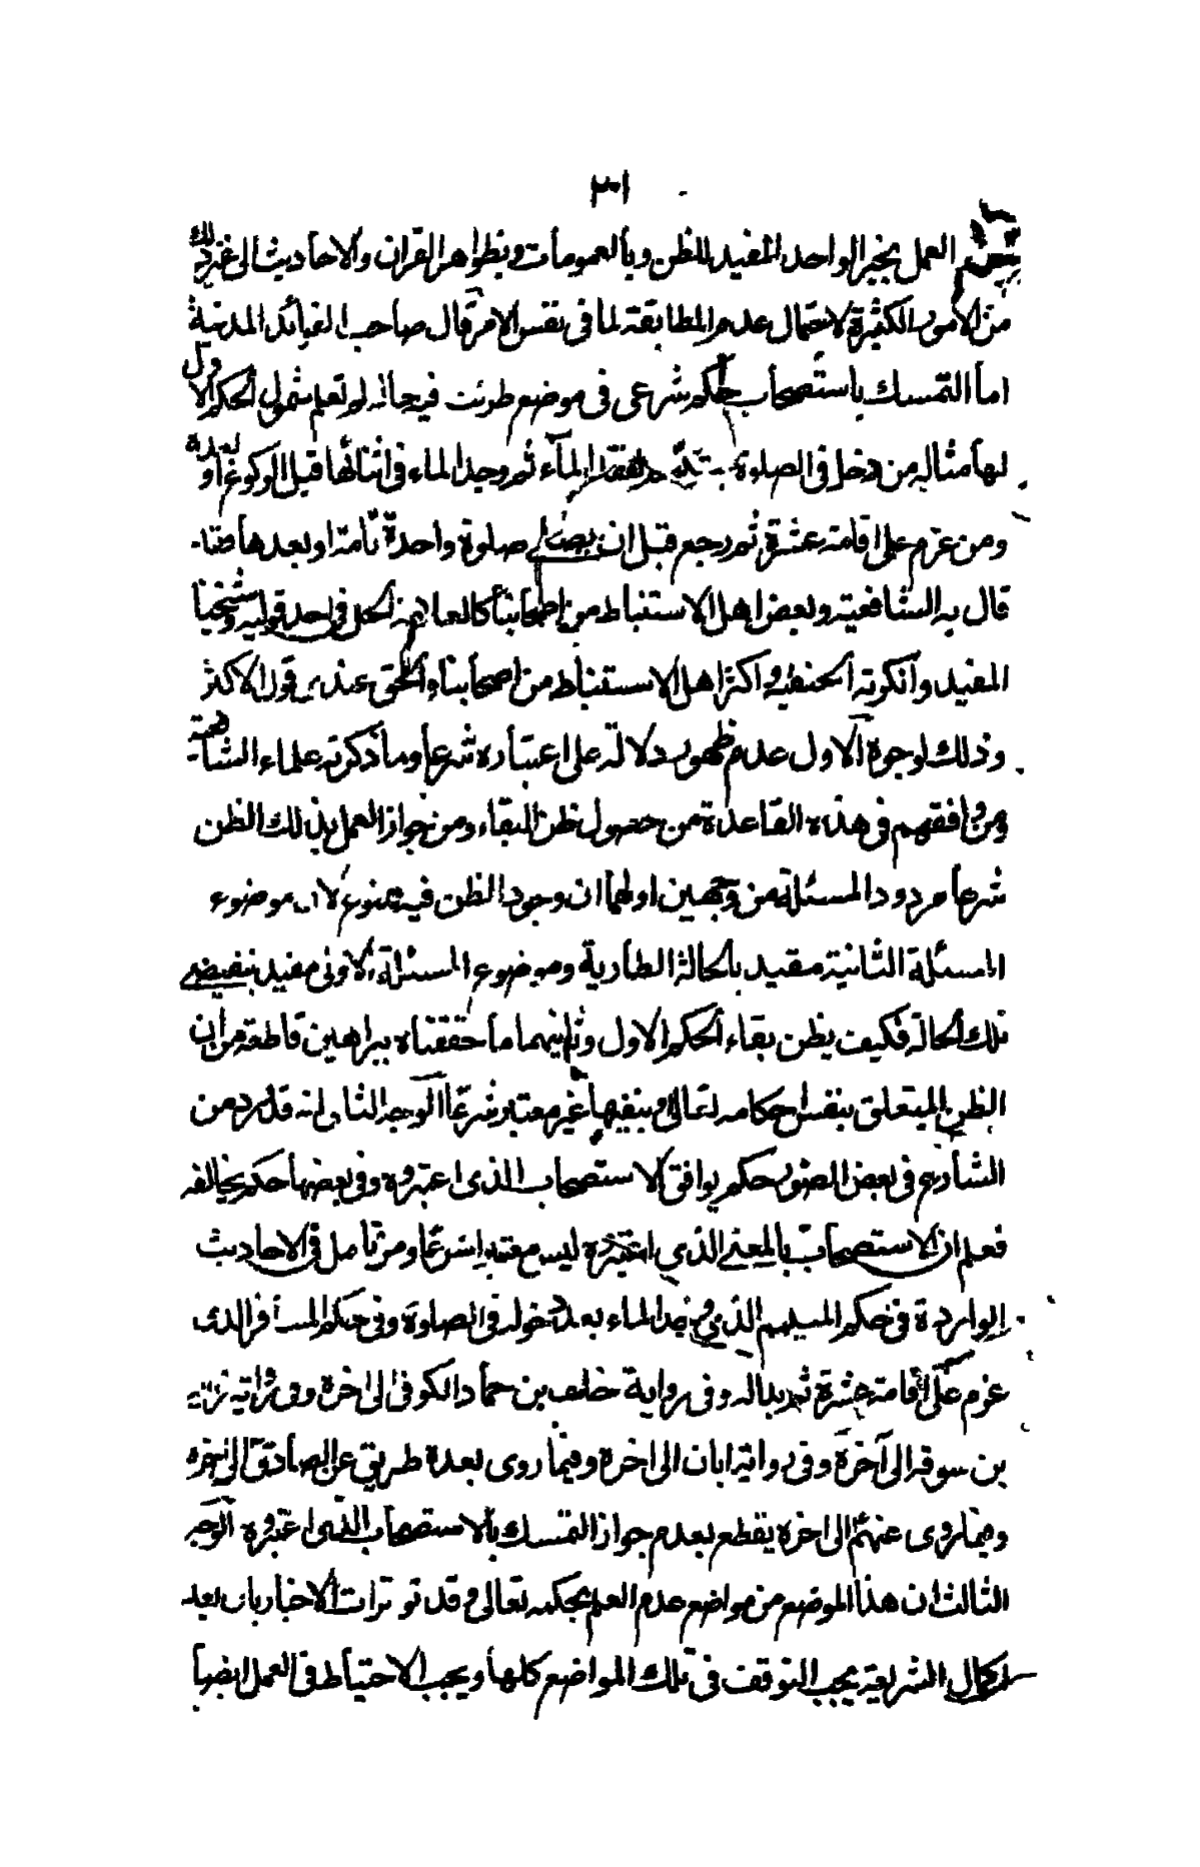 ٣٠١
العمل بخبر الواحد المفيد للظن وبالعمومات وبظواهر القران والاحاديث الى غير ذلك
من الامور الكثيرة لاحتمال عدم المطابقة لما فى نفس الامر قال صاحب الفوائد المدنية
اما التمسك باستصحاب حكم شرعى فى موضع طرئت فيه حالة لم تعلم شمول الحكم الاول
لها مثاله من دخل فى الصلوة بتيمم لفقد الماء ثم وجد الماء فى اثنائها قبل الركوع او بعده
ومن عزم على اقامة عشرة ثم رجع قبل ان يصلى صلوة واحدة تامة او بعدها
قال به الشافعية وبعض اهل الاستنباط من اصحابنا كالعلامة الحلى فى احد قوليه وشيخنا
المفيد وانكرته الحنفية واكثر اهل الاستنباط من اصحابنا والحق عندى قول الاكثر
وذلك لوجوه الاول عدم ظهور دلالة على اعتباره شرعا وما ذكرته علماء الشافعية
ومن وافقهم فى هذه القاعدة من حصول ظن البقاء ومن جواز العمل بذلك الظن
شرعا مردود المسئلة من وجهين اولهما ان وجود الظن فيه ممنوع لان موضوع
المسئلة الثانية مقيد بالحالة الطارية وموضوع المسئلة الاولى مقيد بنقيض
تلك الحالة فكيف يظن بقاء الحكم الاول وثانيهما ما حققناه ببراهين قاطعة من ان
الظن المتعلق بنفس احكامه تعالى وبنفيها غير معتبر شرعا الوجه الثانى انه قد ورد من
الشارع فى بعض الصور حكم يوافق الاستصحاب الذى اعتبروه وفى بعضها حكم يخالفه
فعلم ان الاستصحاب بالمعنى الذى اعتبروه ليس معتبرا شرعا ومن تامل فى الاحاديث
الواردة فى حكم المتيمم الذى وجد الماء بعد دخوله فى الصلوة وفى حكم المسافر الذى
عزم على اقامة عشرة ثم بدا له وفى رواية خلف بن حماد الكوفى الى اخره وفى رواية
بن سوقة الى آخره وفى رواية ابان الى اخره وفيما روى بعدة طريق عن الصادق الى اخره
وفيما روى عنهم الى اخره يقطع بعدم جواز التمسك بالاستصحاب الذى اعتبروه الوجه
الثالث ان هذا الموضع من مواضع عدم العلم بحكمه تعالى وقد تواترات الاخبار بان بعد
اكمال الشريعة يجب التوقف فى تلك المواضع كلها ويجب الاحتياط فى العمل ايضا